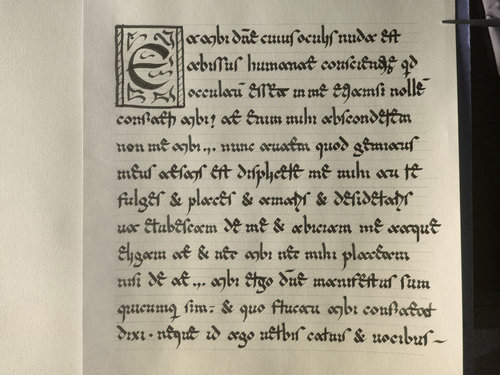 Et tibi dñe cuius oculis nuda est
abissus humanae conscientiae qd
occultū esset in me etiamsi nollē
confiteri tibi? te enim mihi absconderem
non me tibi ... nunc autem quod gemitus
meus testis est displicere me mihi tu re
fulges & places & amaris & desideraris
ut erubescam de me & abiciam me atque
eligam te & nec tibi nec mihi placeam
nisi de te ... tibi ergo dñe manifestus sum
quicumq sim · & quo fructu tibi confitear
dixi · neque id ago uerbis carnis & uocibus –